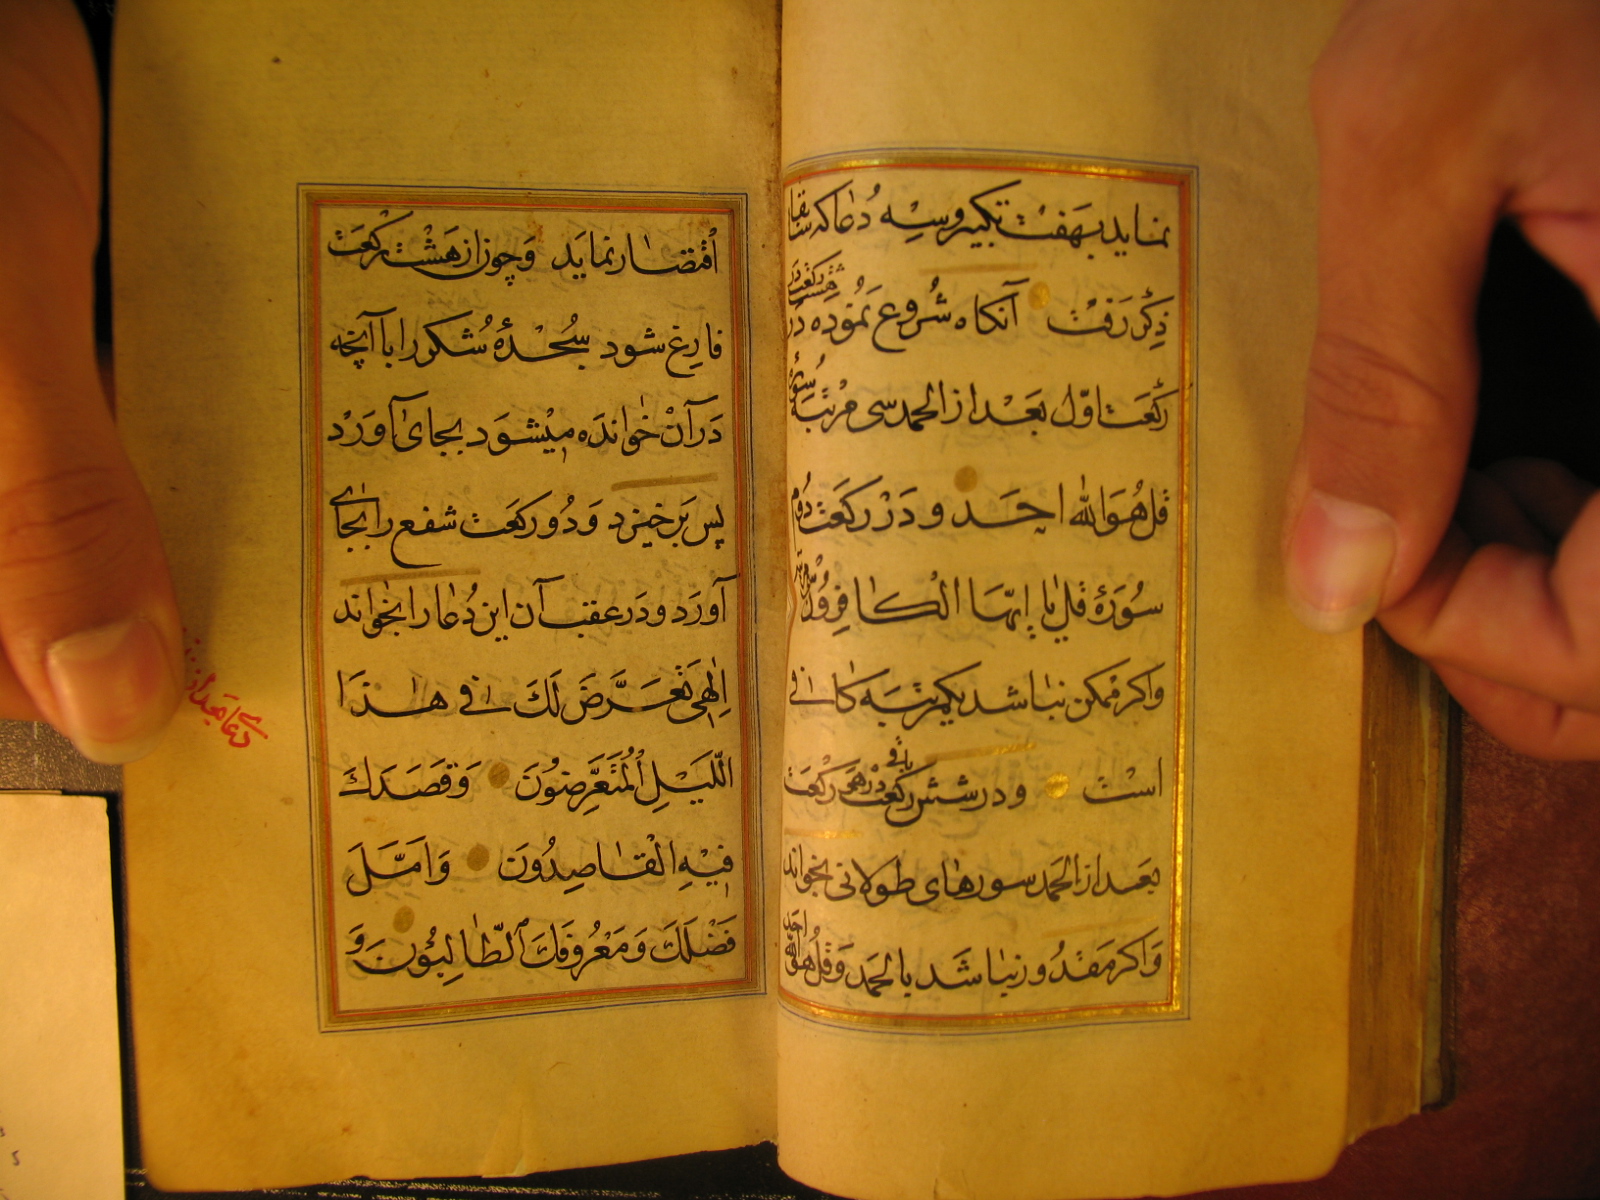 نماید بهفت تکبیر و سه دُعا که سابقا
ذِکر رَفت آنکاه شُروع نموده در هشت رکعت
رکعت اوّل بَعد از الحمد سی مرتبه سُورهٔ
قل هُوَ الله احَد و دَر رکعَت دُوم
سُورَهٔ قل یا ایّها الکافِرُون
وَاکر ممکن نباشد یکمرتبَه کافی
است و در شش رکعت باقی در هر رکعَت
بعد از الحمد سورهای طولانی بخواند
وَاکر مَقدُور نباشَد بالحمد وَ قُل هُوَ الله احد
اقتصار نماید وَ چون از هَشت رکعَت
فارِغ شود سُجدهٔ شُکر را با آنچه
دَر آن خواندَه میشوَد بجای آوَرد
پس بَرخیزد وَ دُو رکعَت شفع را بجای
آورَد و دَر عقب آن این دُعا را بخواند
اِلٰهِی تَعَرَّضَ لَکَ فی هٰذَا
اللَّیلِ المُتَعَرِّضُونَ وَقَصَدَکَ
فیهِ القٰاصِدُونَ وَاَمَّلَ
فَضْلَکَ وَمَعْرُوفَکَ الطّالِبُونَ وَ